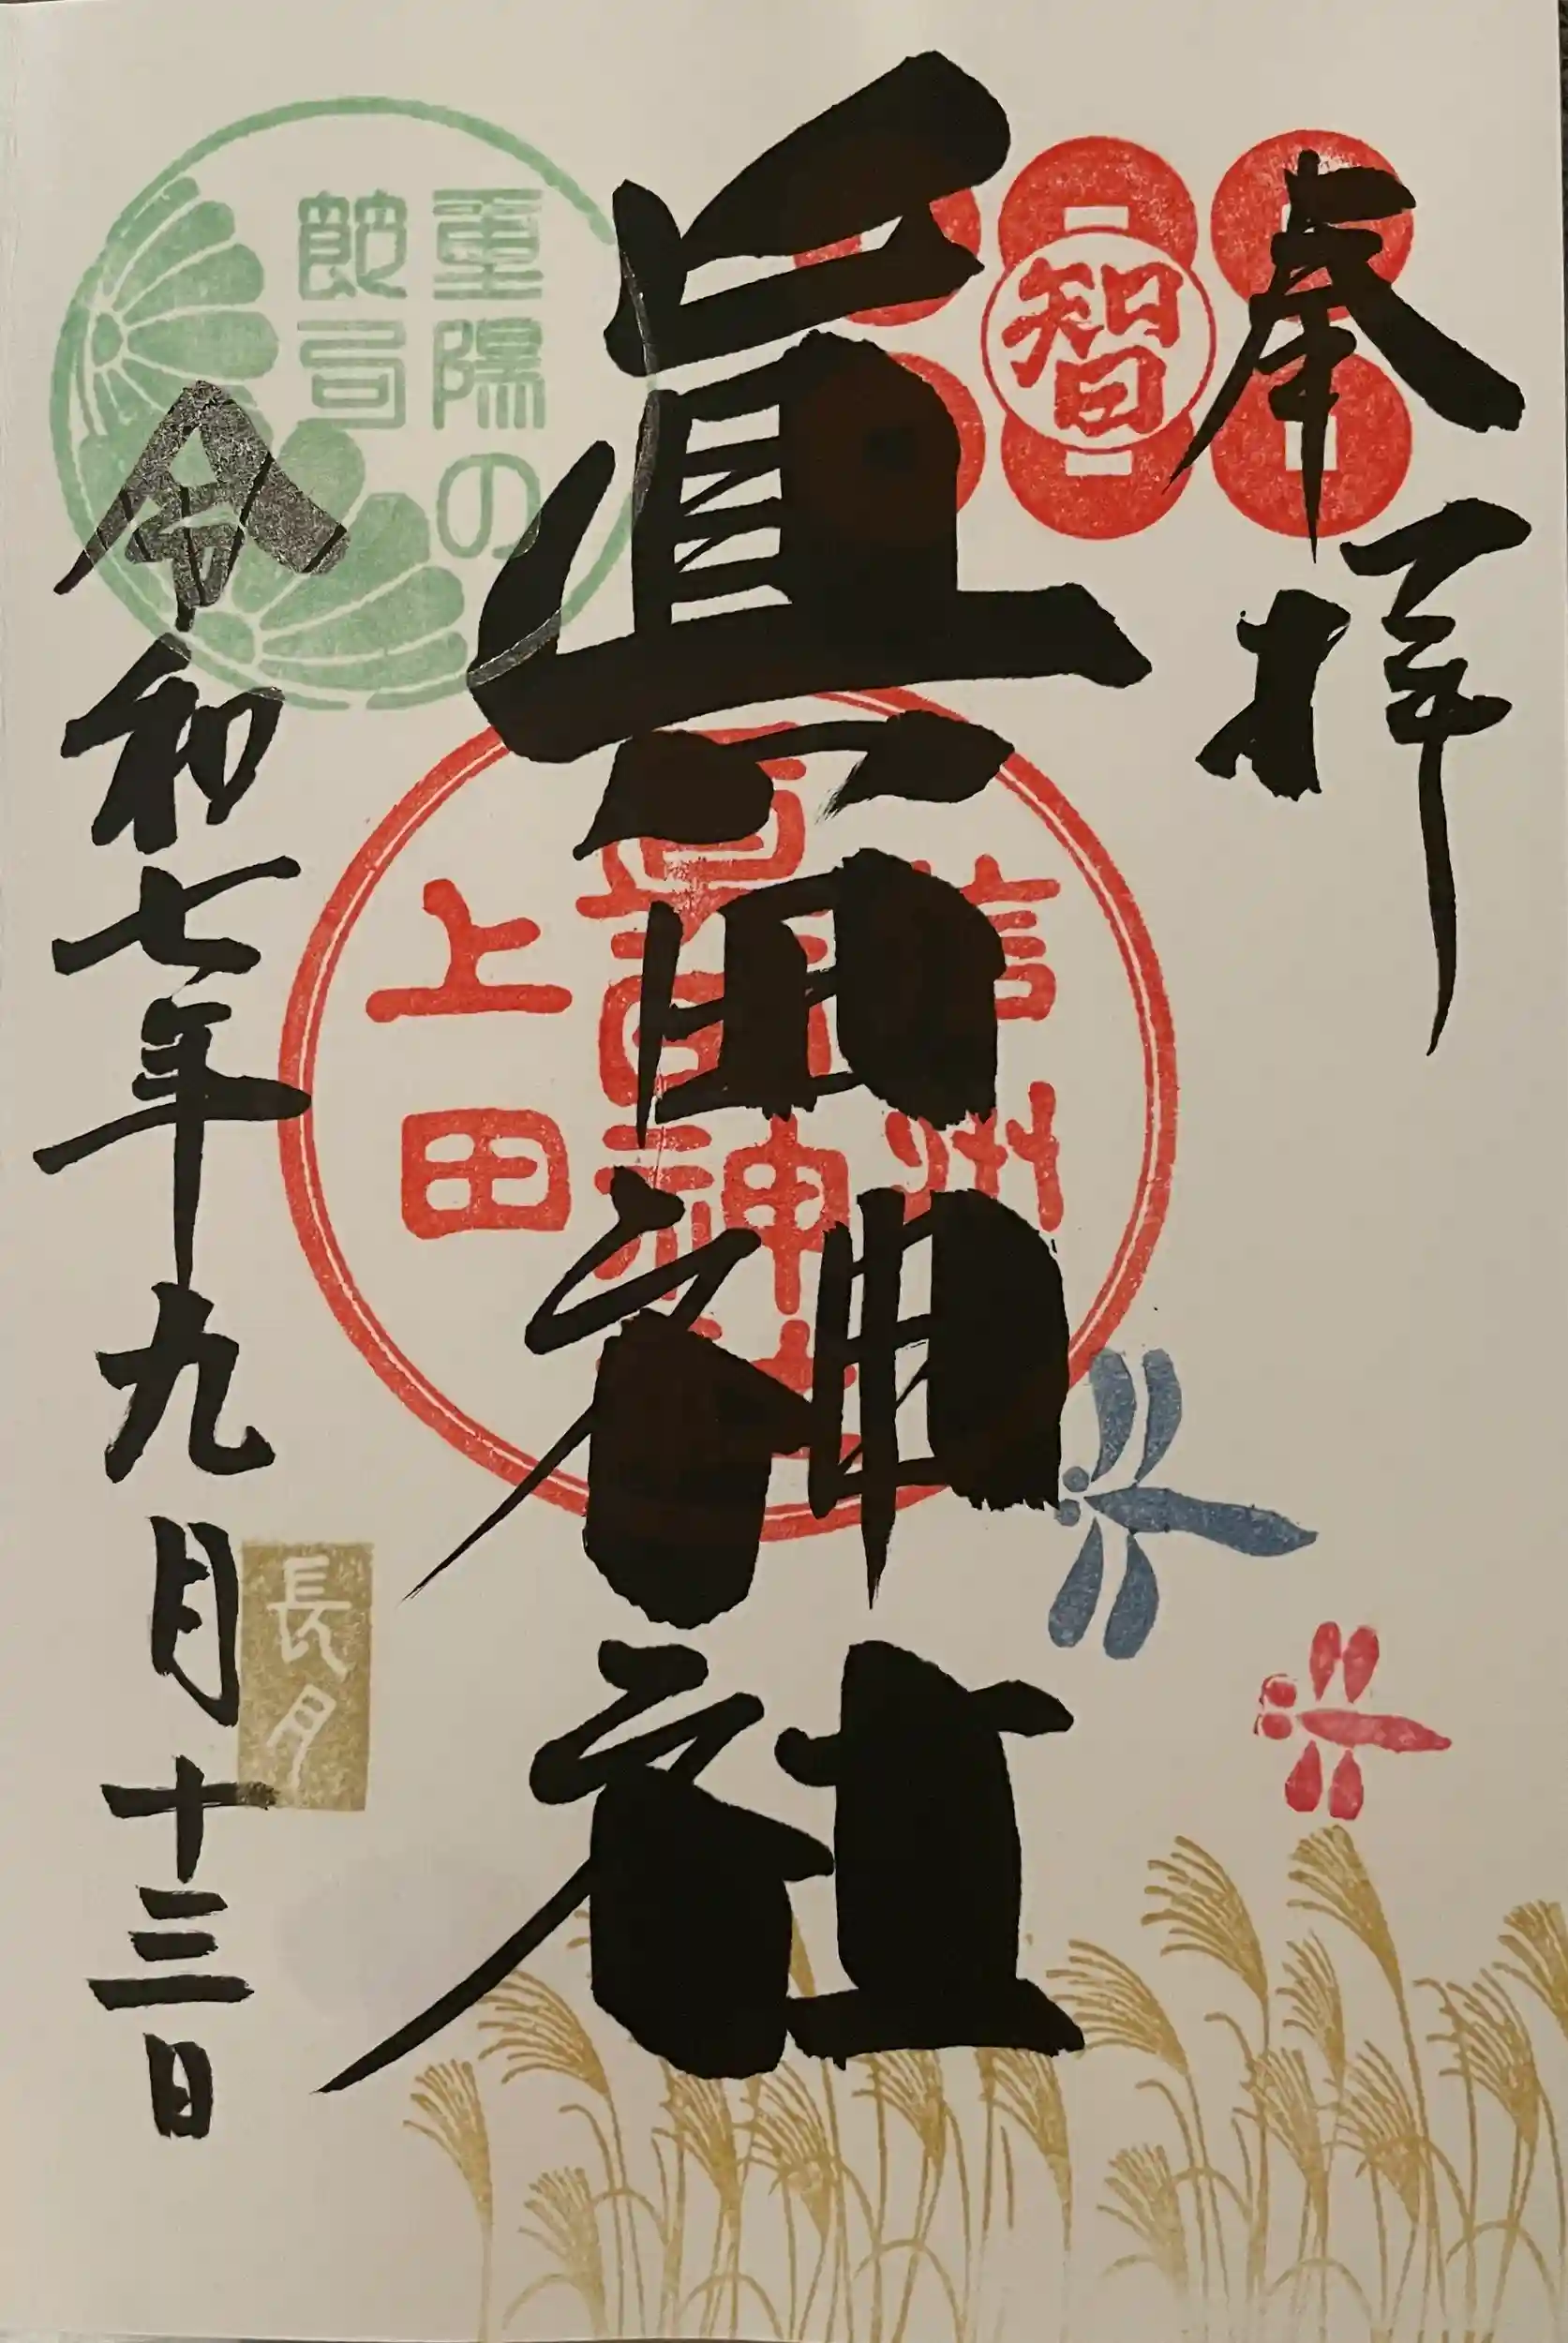 奉拝
智
眞田神社
信州
上田
重陽の
節句
令和七年九月十三日
長月